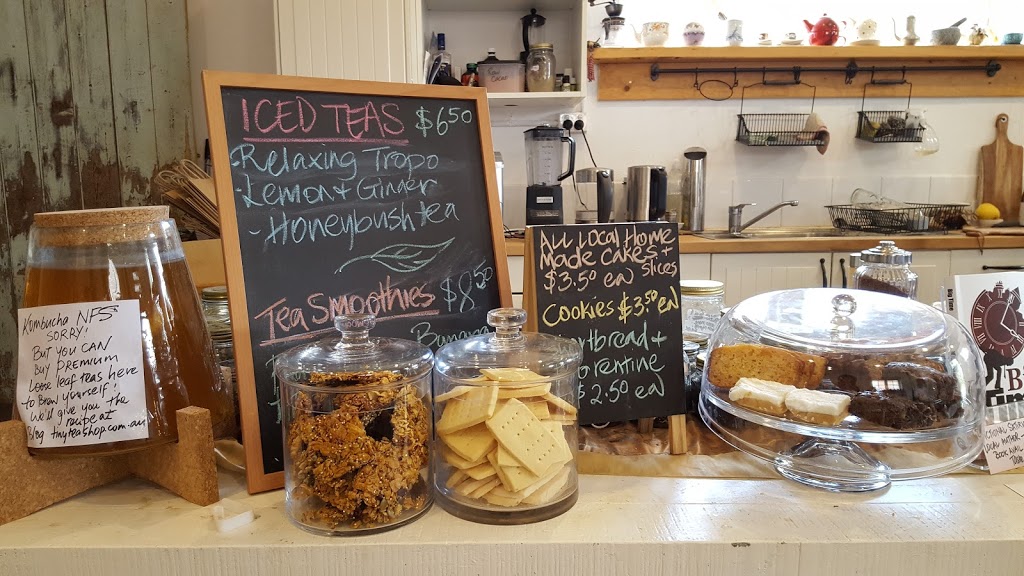 ICED TEAS $6.50
Relaxing Tropo
-Lemon + Ginger
-Honeybush tea
Tea Smoothies $8.50
Banana
Kombucha NFS
SORRY!
BUT YOU CAN
BUY PREMIUM
Loose leaf teas here
to Brew yourself!
We'll give you the
recipe at
tinyteashop.com.au
All Local Home
Made cakes +
$3.50 ea slices
Cookies $3.50 ea
rtbread +
orentine
$2.50 ea